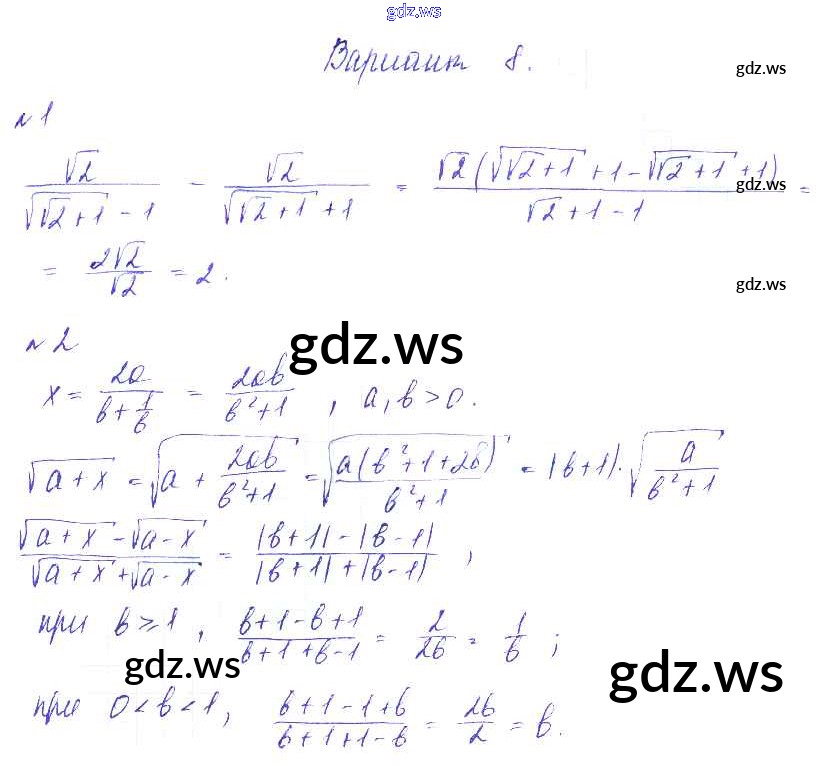 gdz.ws
Вариант 8.
gdz.ws
№1
√2/(√(√2+1) - 1) - √2/(√(√2+1) + 1) = √2(√(√2+1) + 1 - √(√2+1) + 1)/(√2+1-1) =
gdz.ws
= 2√2/√2 = 2.
gdz.ws
№2
gdz.ws
x = 2a/(b+1/b) = 2ab/(b²+1), a, b > 0.
√(a+x) = √(a + 2ab/(b²+1)) = √(a(b²+1+2b)/(b²+1)) = |b+1|·√(a/(b²+1))
(√(a+x) - √(a-x))/(√(a+x) + √(a-x)) = (|b+1| - |b-1|)/(|b+1| + |b-1|),
при b ≥ 1, (b+1-b+1)/(b+1+b-1) = 2/2b = 1/b;
gdz.ws
gdz.ws
при 0<b<1, (b+1-1+b)/(b+1+1-b) = 2b/2 = b.